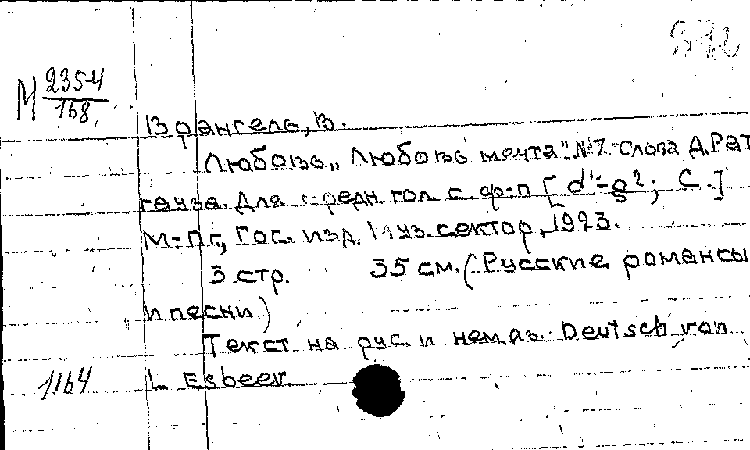 592
М 2354/168.
Врангель, В.
Любовь „Любовь мечта". №7. Слова Д. Рат
гауза. Для средн. гол. с ф-п [d'-g²; C.]
М-Пг, Гос. изд. Муз. сектор, 1923.
3 стр. 35 см. (Русские романсы
и песни)
Текст на рус. и нем. яз. Deutsch von
L. Esbeer
1164